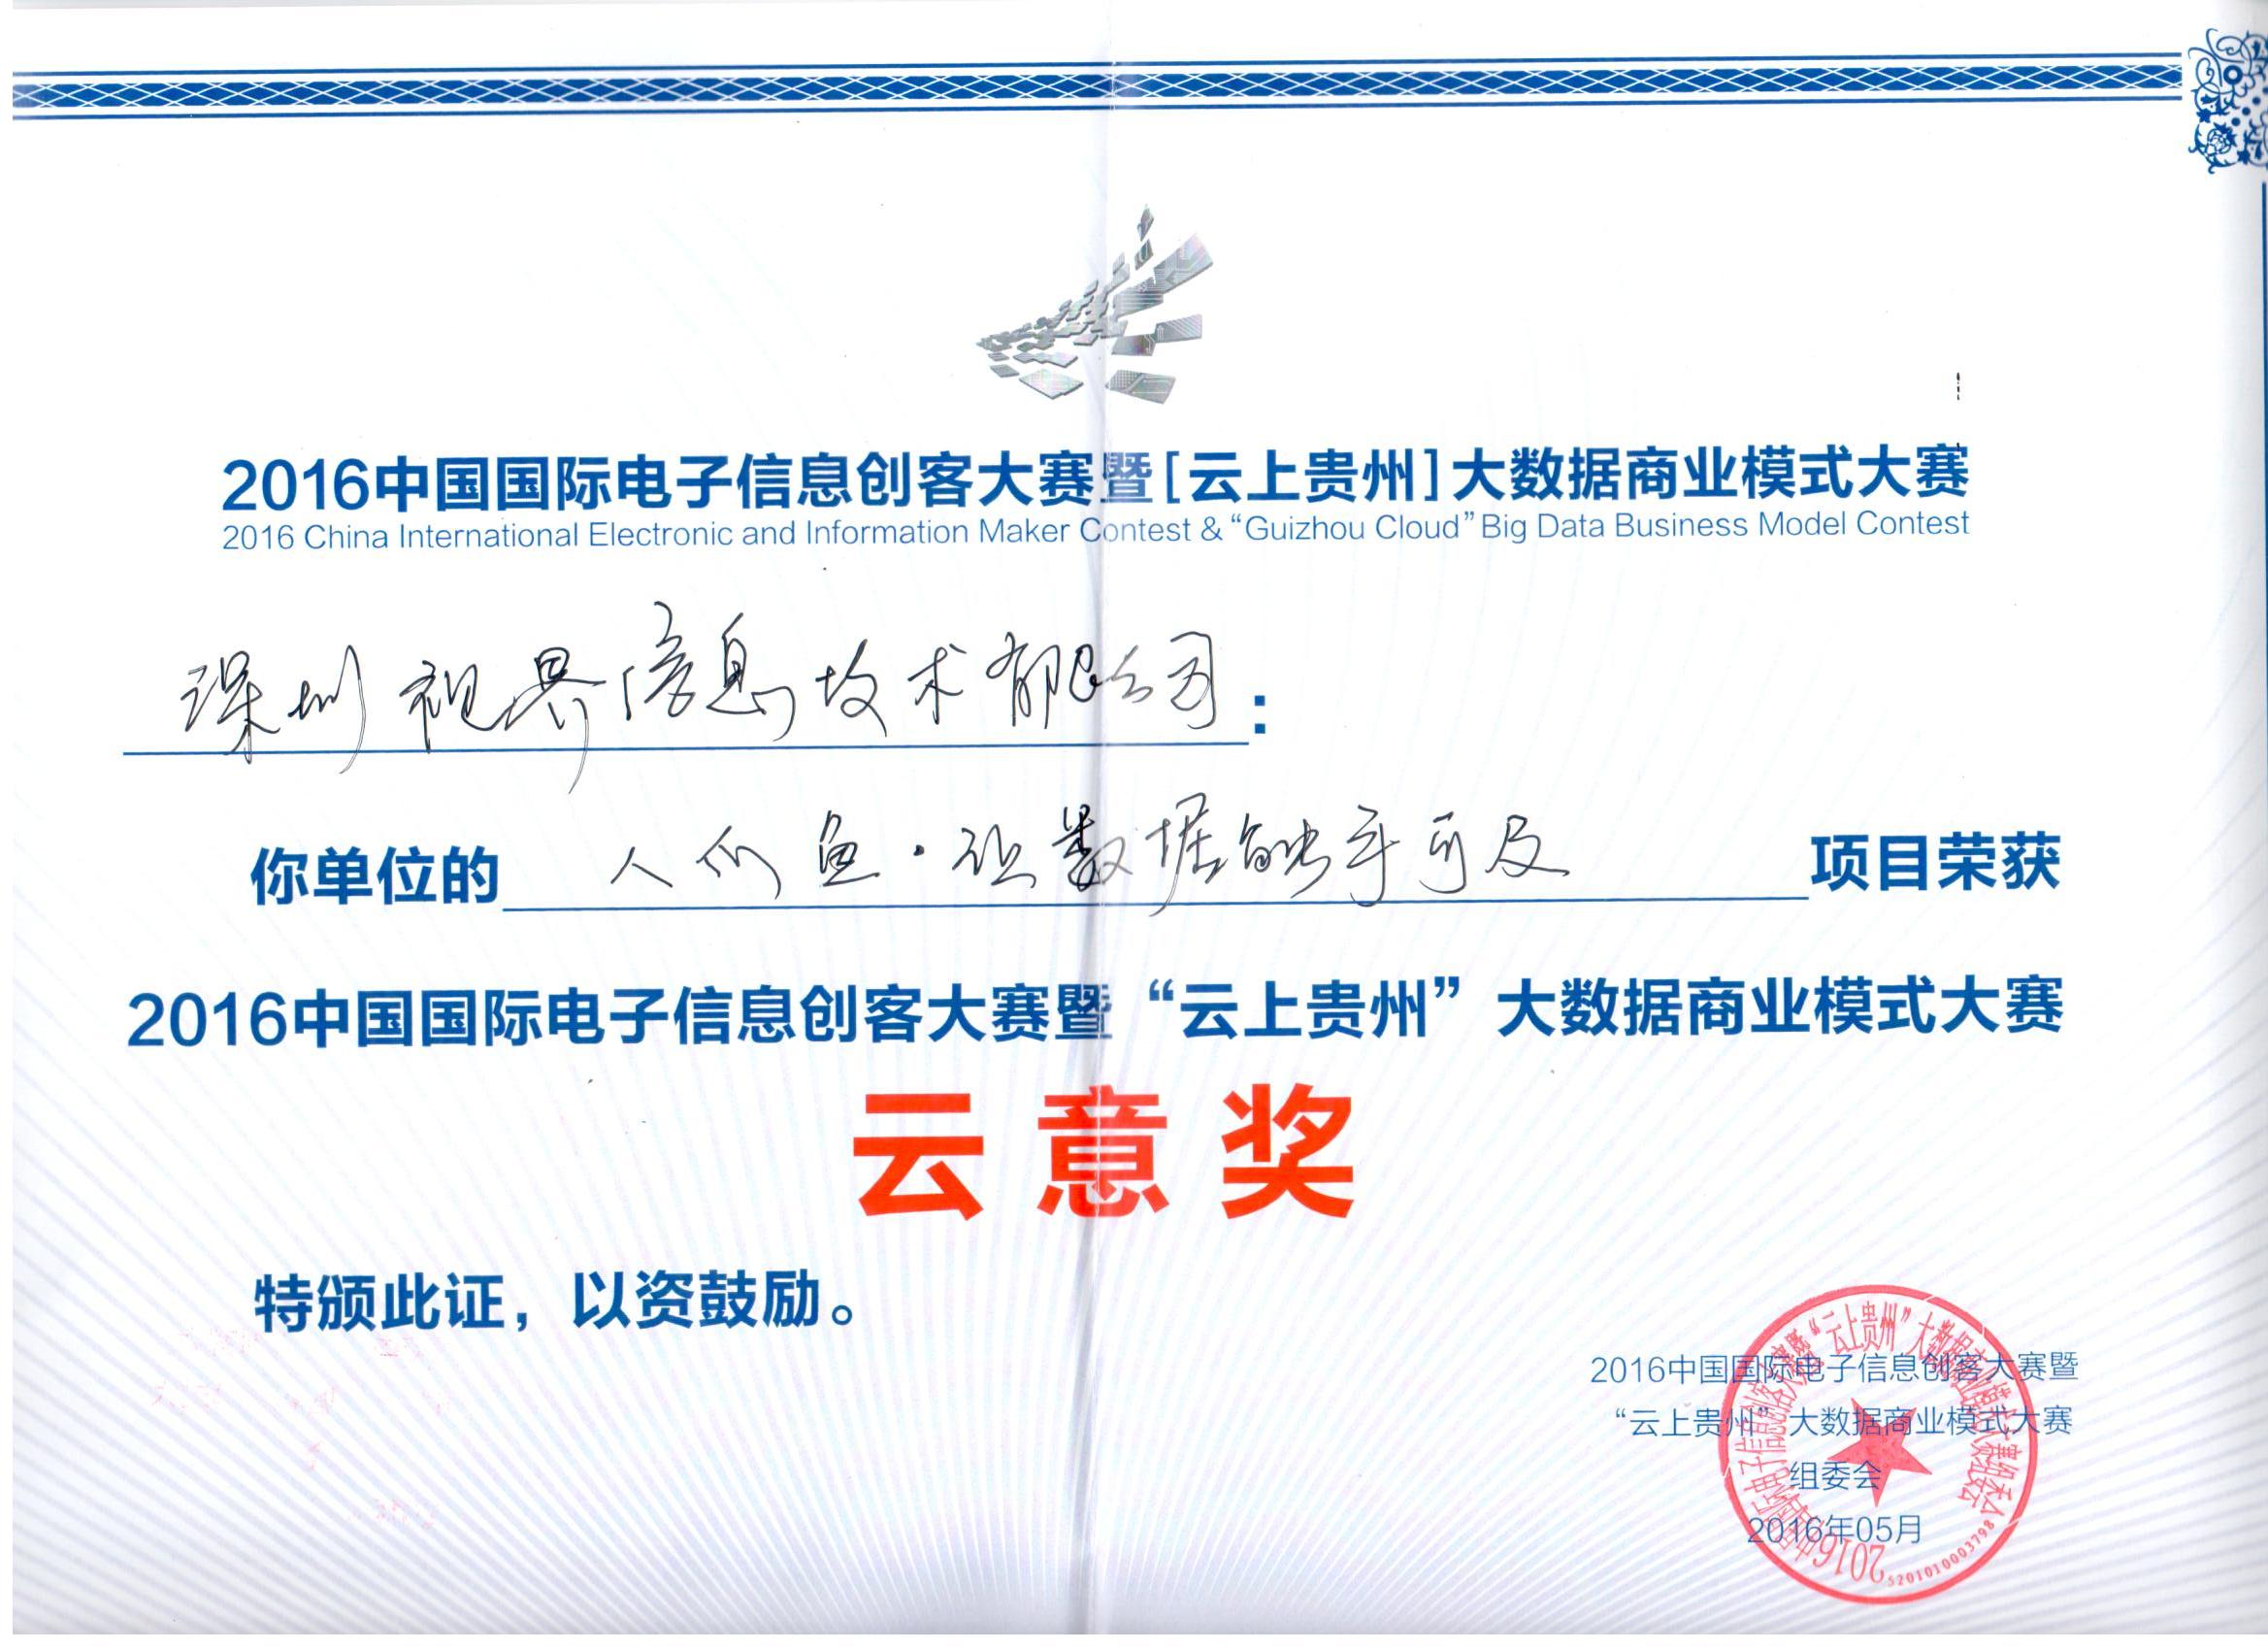 2016中国国际电子信息创客大赛暨[云上贵州]大数据商业模式大赛
2016 China International Electronic and Information Maker Contest & “Guizhou Cloud” Big Data Business Model Contest
深圳视界信息技术有限公司：
你单位的 人们鱼·让数据触手可及 项目荣获
2016中国国际电子信息创客大赛暨“云上贵州”大数据商业模式大赛
云意奖
特颁此证，以资鼓励。
2016中国国际电子信息创客大赛暨
“云上贵州”大数据商业模式大赛
组委会
2016年05月
2016中国国际电子信息创客大赛暨“云上贵州”大数据商业模式大赛组委会
5201010003798